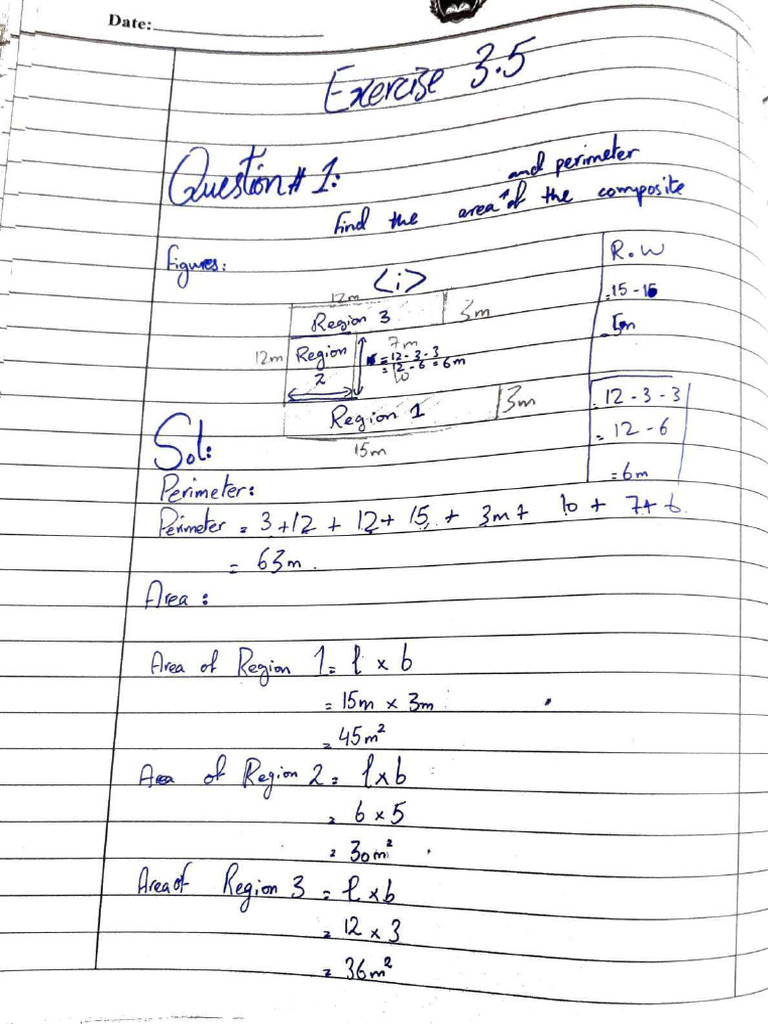 Date:
Exercise 3.5
Question # 1:
and perimeter
Find the area of the composite
Figures:
<i>
R.W
12m
15 - 15
Region 3
3m
7m
12m
Region
2
= 12 - 3 - 3
= 12 - 6 = 6m
10
= 12 - 3 - 3
Region 1
3m
= 12 - 6
15m
= 6m
Sol:
Perimeter:
Perimeter = 3 + 12 + 12 + 15 + 3m + 10 + 7 + 6
= 63m.
Area:
Area of Region 1 = l x b
= 15m x 3m
= 45m²
Area of Region 2 = l x b
= 6 x 5
= 30m²
Area of Region 3 = l x b
= 12 x 3
= 36m²